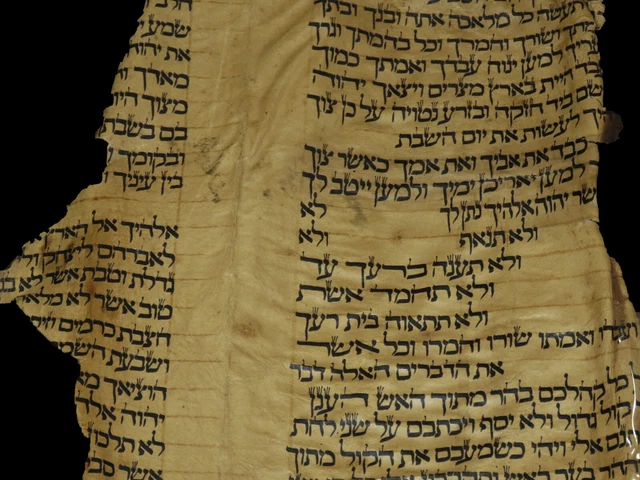 תעשה כל מלאכה אתה ובנך ובתך
ושורך וחמרך וכל בהמתך וגרך
למען ינוח עבדך ואמתך כמוך
היית בארץ מצרים ויצאך יהוה
שם ביד חזקה ובזרע נטויה על כן צוך
לעשות את יום השבת
כבד את אביך ואת אמך כאשר צוך
למען יאריכן ימיך ולמען ייטב לך
אשר יהוה אלהיך נתן לך לא
ולא תנאף ולא
ולא תענה ברעך עד
ולא תחמד אשת
ולא תתאוה בית רעך
ועבדו ואמתו שורו וחמרו וכל אשר
את הדברים האלה דבר
כל קהלכם בהר מתוך האש הענן
קול גדול ולא יסף ויכתבם על שני לחת
אלי ויהי כשמעכם את הקול מתוך
וההר בער באש
שמעי
את יהוה
מאדך
מצוך היום
בם בשבתך
ובקומך
בין עיניך
אלהיך אל הארץ
לאברהם ליצחק
גדלת וטבת אשר לא
טוב אשר לא מלאת
חצבת כרמים
ושבעת השמר
הוציאך
יהוה
לא תלכו
אשר